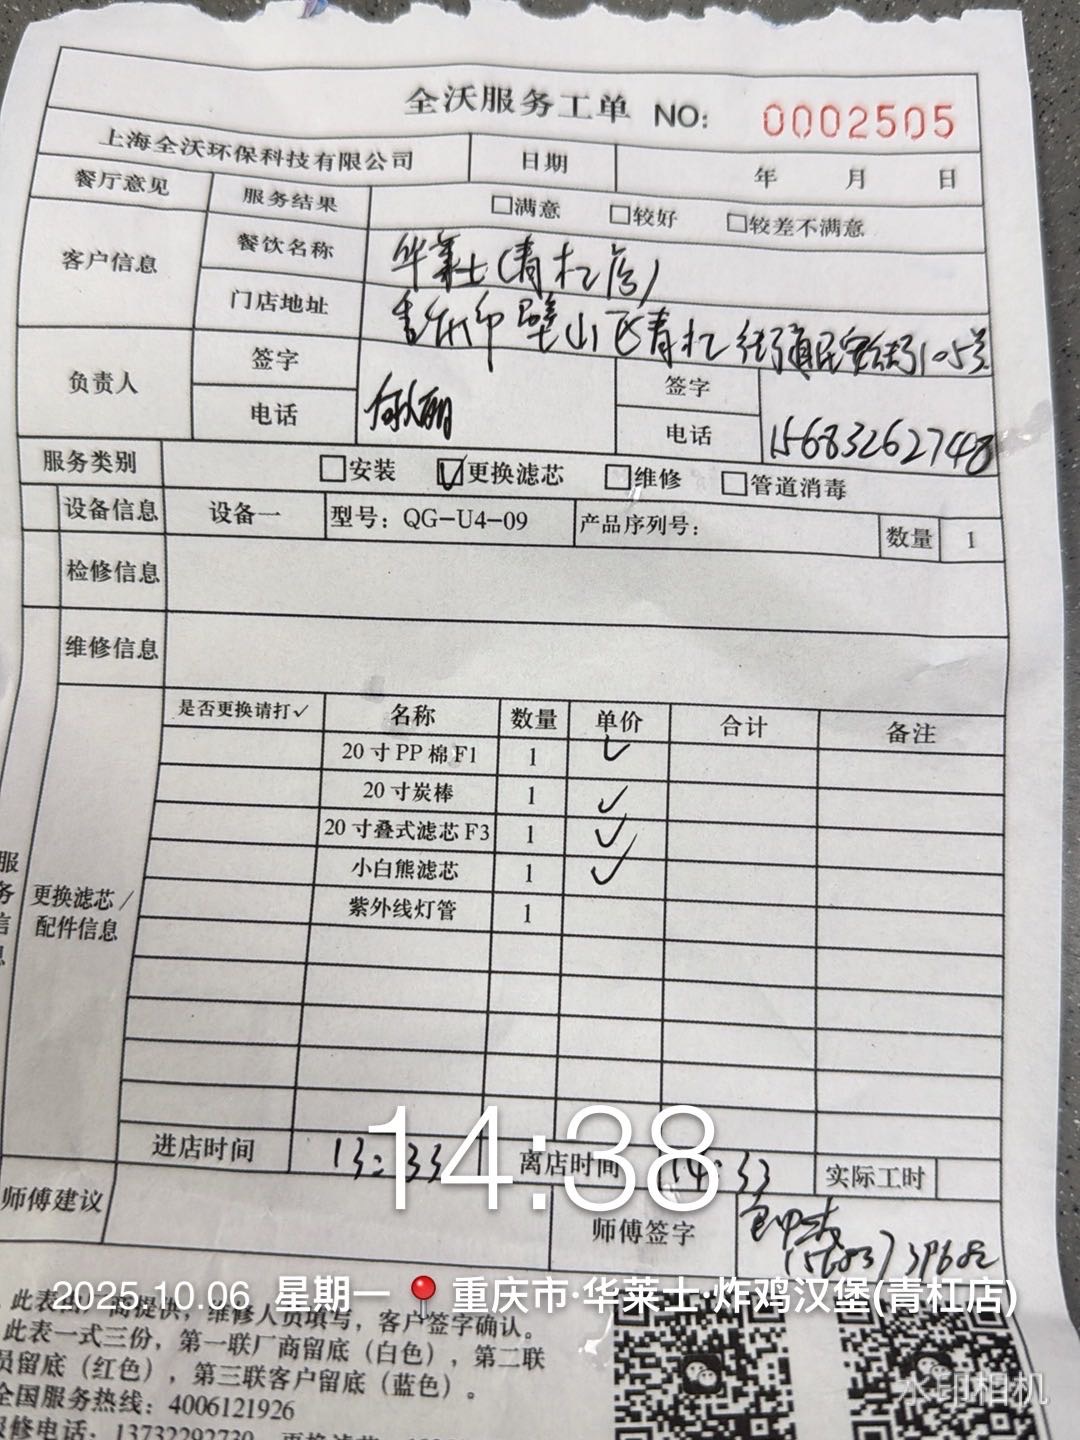 全沃服务工单 NO: 0002505
上海全沃环保科技有限公司 日期 年 月 日
餐厅意见 服务结果 □满意 □较好 □较差不满意
客户信息 餐饮名称 华莱士(青杠店)
门店地址 重庆市璧山区青杠街道民安街105号
负责人 签字 签字
电话 电话 15683262748
服务类别 □安装 ☑更换滤芯 □维修 □管道消毒
设备信息 设备一 型号：QG-U4-09 产品序列号： 数量 1
检修信息
维修信息
是否更换请打✓ 名称 数量 单价 合计 备注
20寸PP棉F1 1 ✓
20寸炭棒 1 ✓
20寸叠式滤芯F3 1 ✓
小白熊滤芯 1 ✓
紫外线灯管 1
服务信息
更换滤芯/
配件信息
进店时间 13:33 离店时间 14:33 实际工时
14:38
师傅建议 师傅签字
2025.10.06 星期一 重庆市·华莱士·炸鸡汉堡(青杠店)
此表 商提供，维修人员填写，客户签字确认。
此表一式三份，第一联厂商留底（白色），第二联
员留底（红色），第三联客户留底（蓝色）。
全国服务热线：4006121926
修电话：13732292730
水印相机